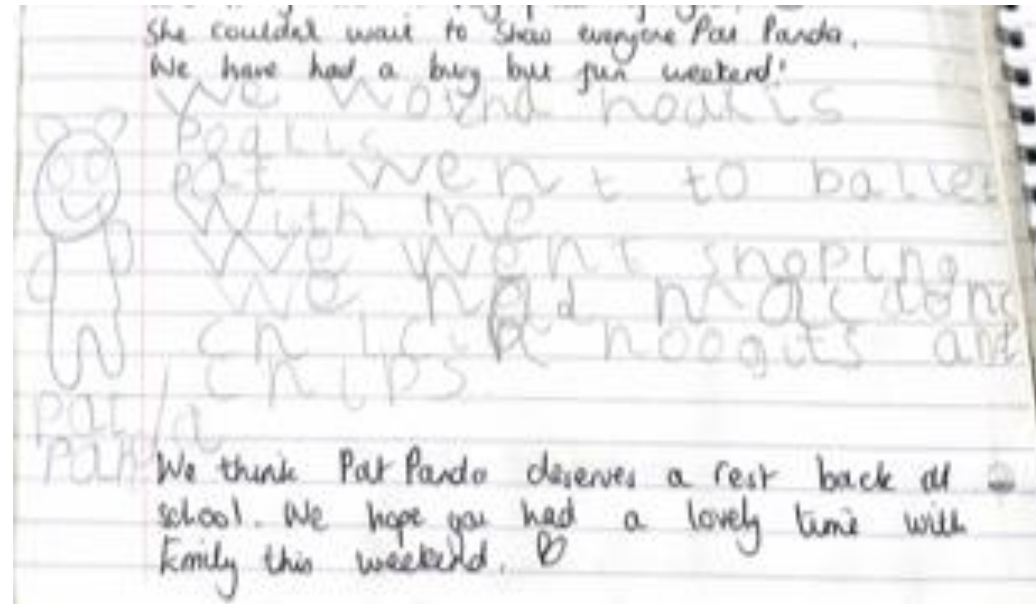 She couldn't wait to show everyone Pat Panda.
We have had a busy but fun weekend!
We
pat went to ballet
With me
We went shoping
We had macdons
chicn noogits and
chips
pat
pan
We think Pat Panda deserves a rest back at
school. We hope you had a lovely time with
Emily this weekend.